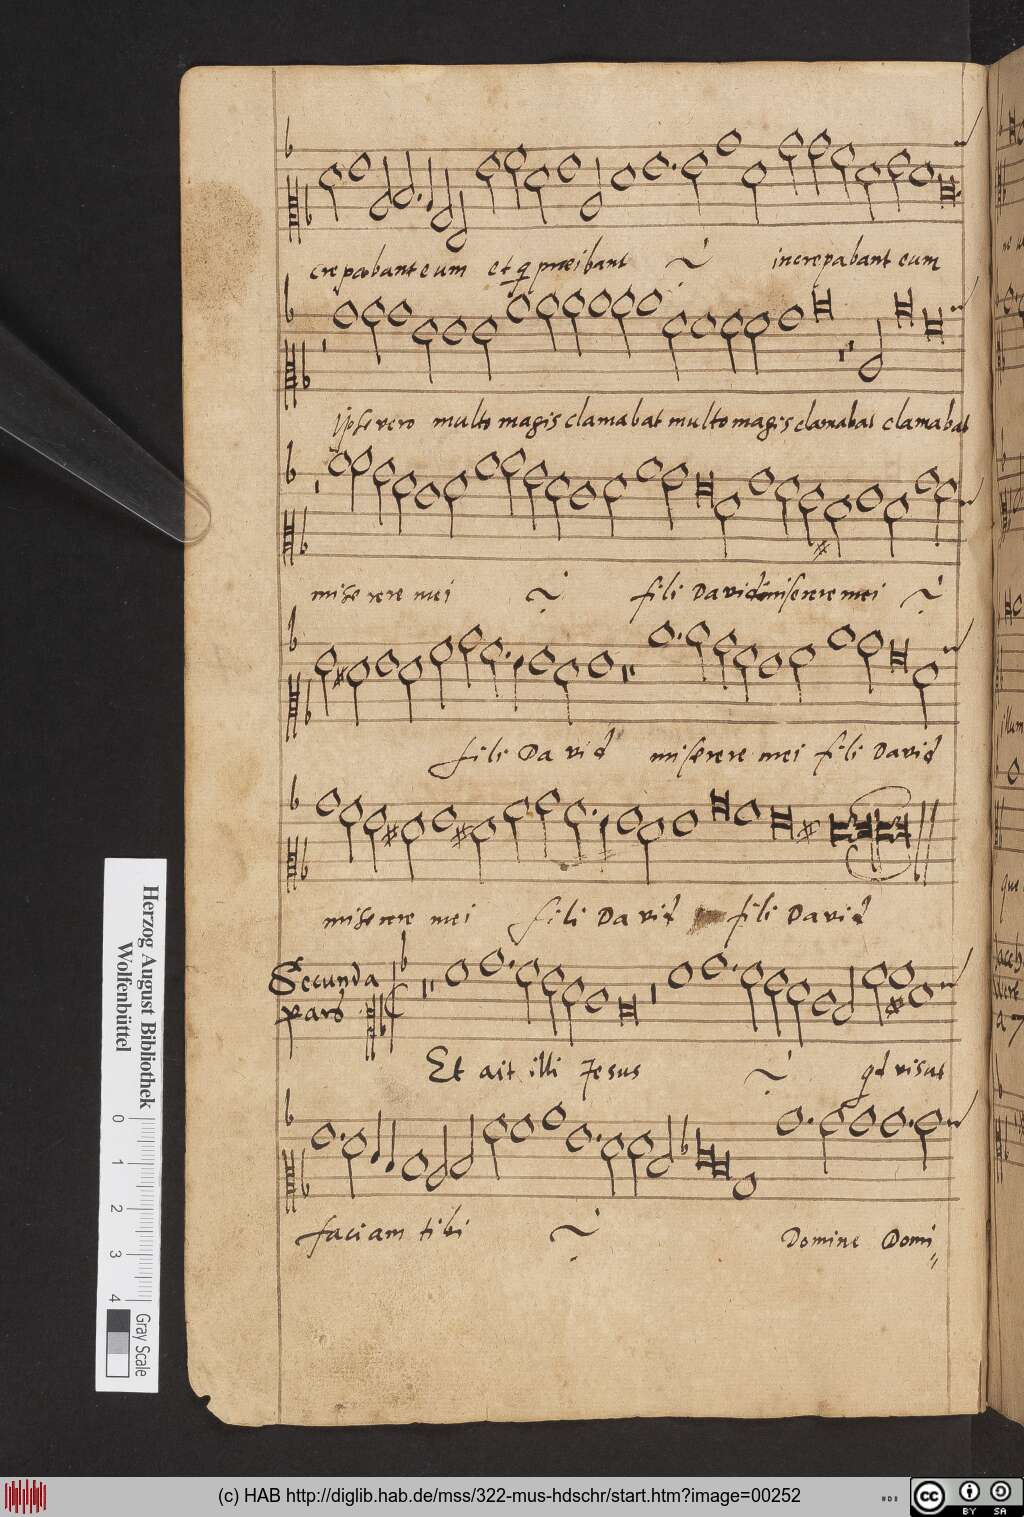 crepabant eum et q præibant increpabant eum
Ipse vero multo magis clamabat multo magis clamabat clamabat
miserere mei fili David miserere mei
fili David miserere mei fili David
miserere mei fili David fili David
Secunda
pars
Et ait illi Jesus qd visat
faciam tibi Domine Domi
Herzog August Bibliothek
Wolfenbüttel
0 1 2 3 4 Gray Scale
(c) HAB http://diglib.hab.de/mss/322-mus-hdschr/start.htm?image=00252
cc BY SA